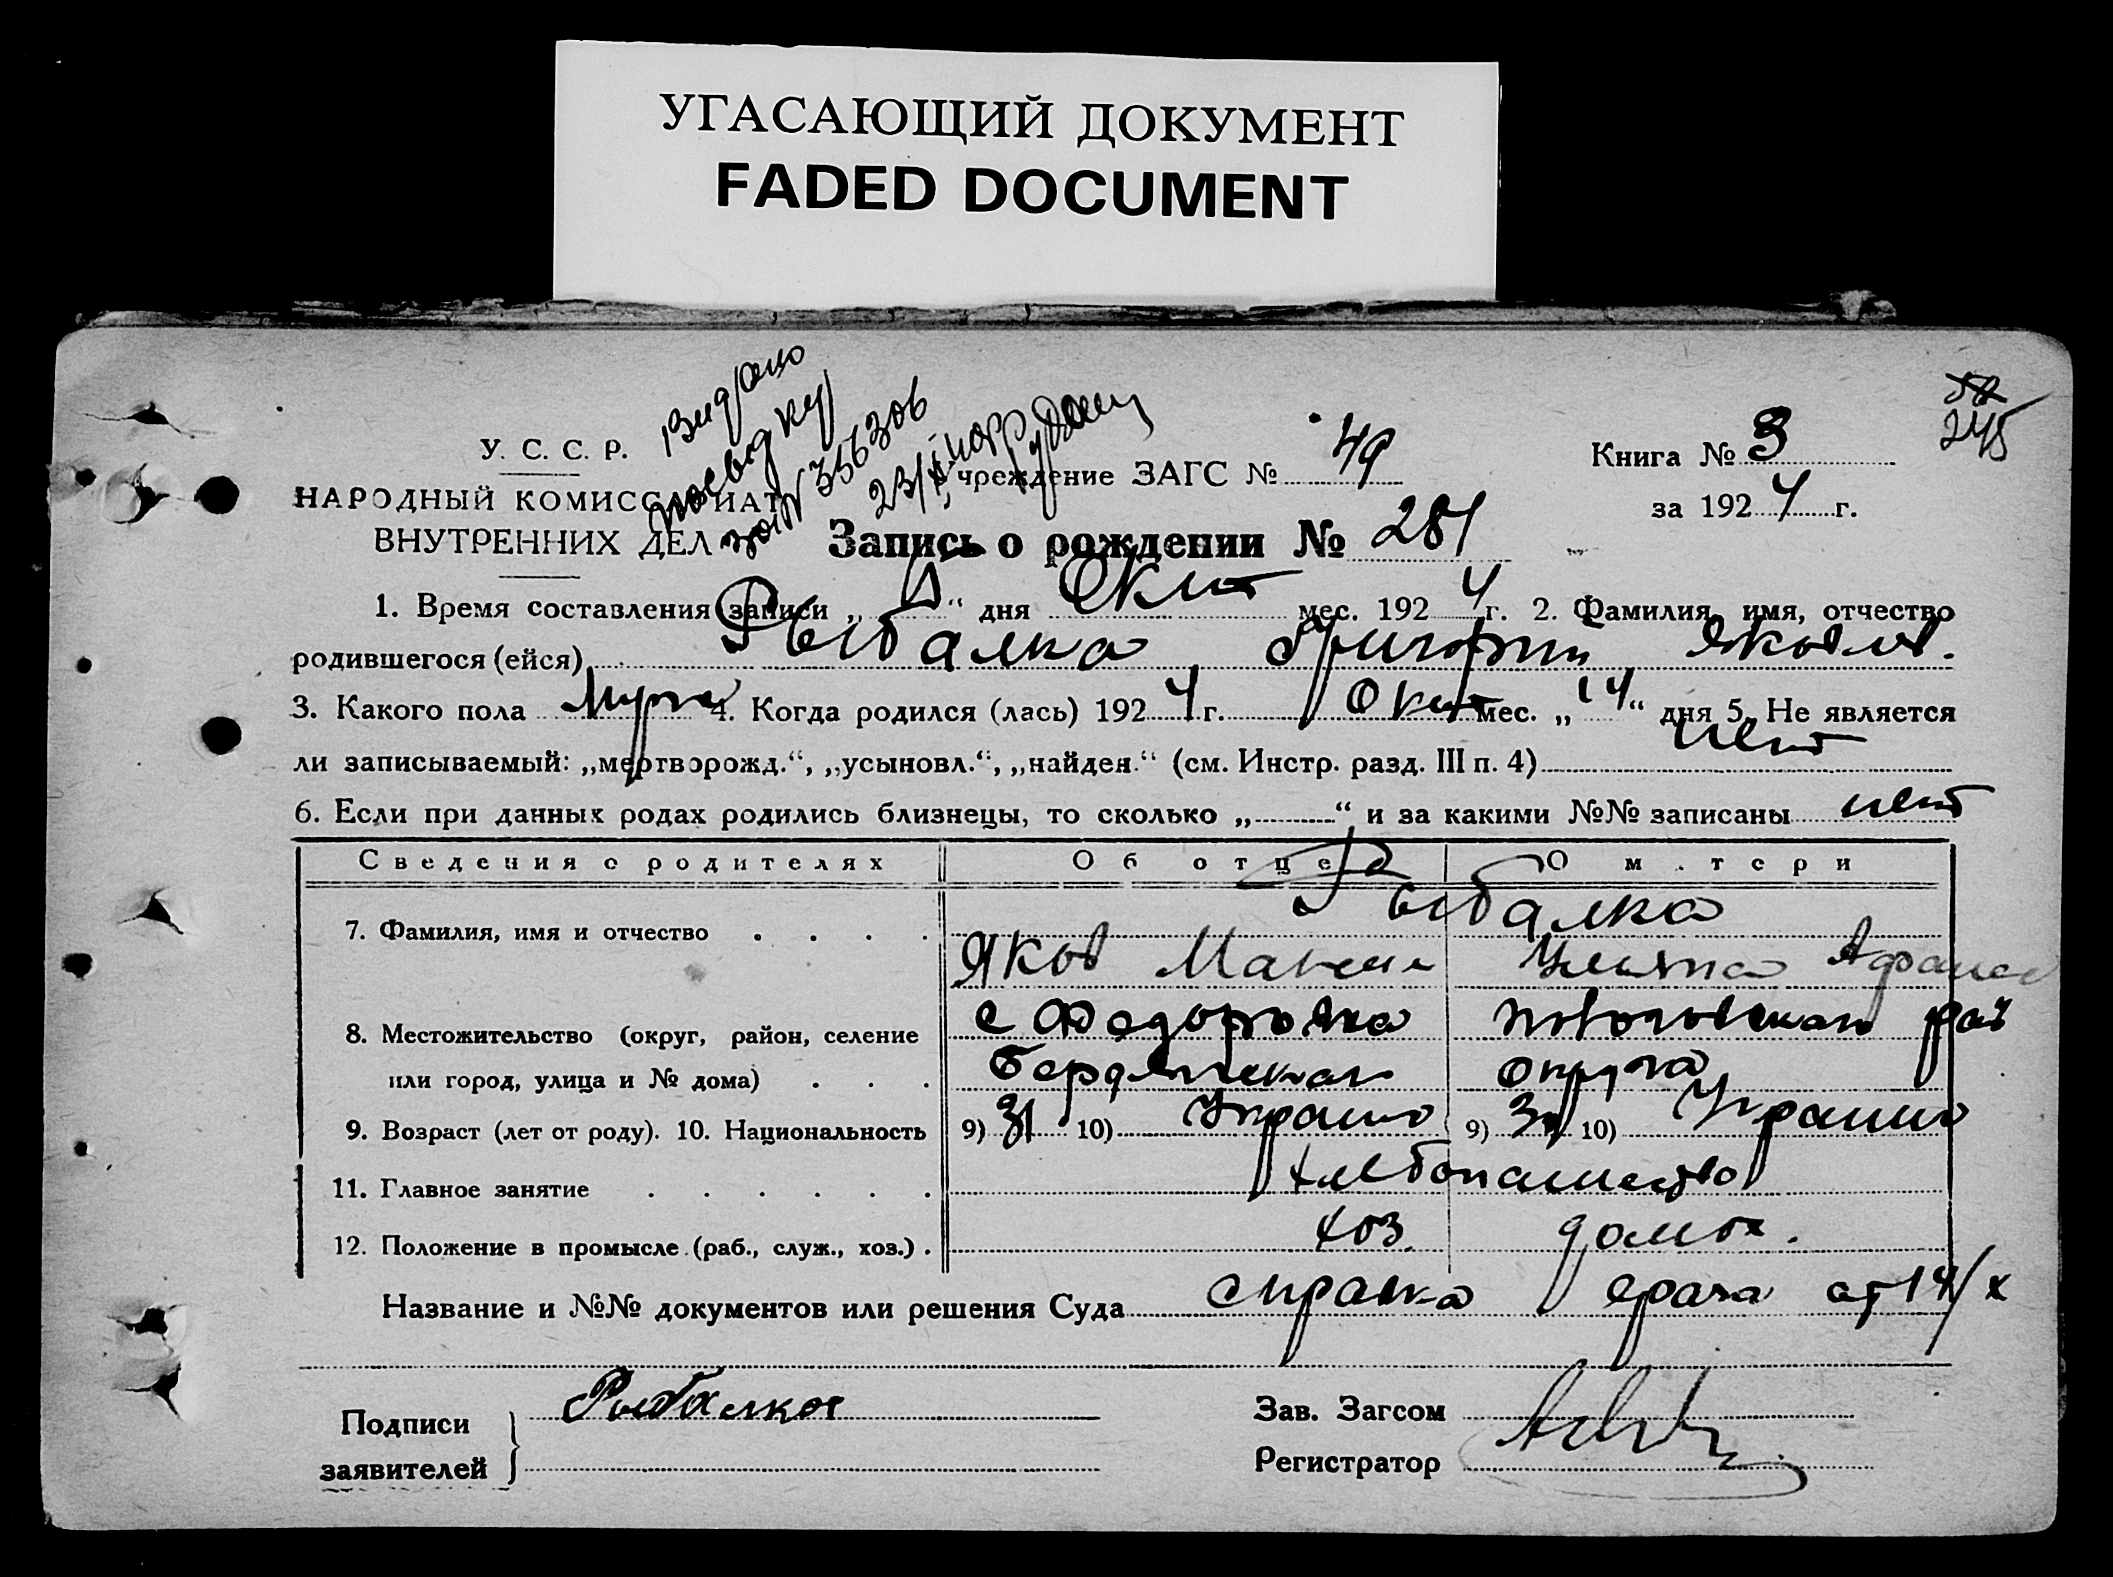 УГАСАЮЩИЙ ДОКУМЕНТ
FADED DOCUMENT
58
245
Видано
У. С. С. Р.
Учреждение ЗАГС № 49
Книга № 3
НАРОДНЫЙ КОМИССАРИАТ
ВНУТРЕННИХ ДЕЛ
за 1924 г.
Запись о рождении № 281
1. Время составления записи „ “ дня Окт мес. 1924 г. 2. Фамилия, имя, отчество
родившегося (ейся) Рыбалка Григорий Яковлев.
3. Какого пола Мужс 4. Когда родился (лась) 1924 г. Окт мес. „14“ дня 5. Не является
ли записываемый: „мертворожд.“, „усыновл.“, „найден.“ (см. Инстр. разд. III п. 4) нет
6. Если при данных родах родились близнецы, то сколько „ “ и за какими №№ записаны нет
Сведения о родителях Об отце О м.тери
Рыбалка
7. Фамилия, имя и отчество Яков Максим Ульяна Афанас
8. Местожительство (округ, район, селение с Федоровка рай
или город, улица и № дома) Бердянская округа
9. Возраст (лет от роду). 10. Национальность 9) 31 10) Украин 9) 10) Украин
11. Главное занятие хлебопашество
12. Положение в промысле (раб., служ., хоз.) хоз. домох.
Название и №№ документов или решения Суда справка врача от 14/X
Подписи заявителей Рыбалка
Зав. Загсом
Регистратор